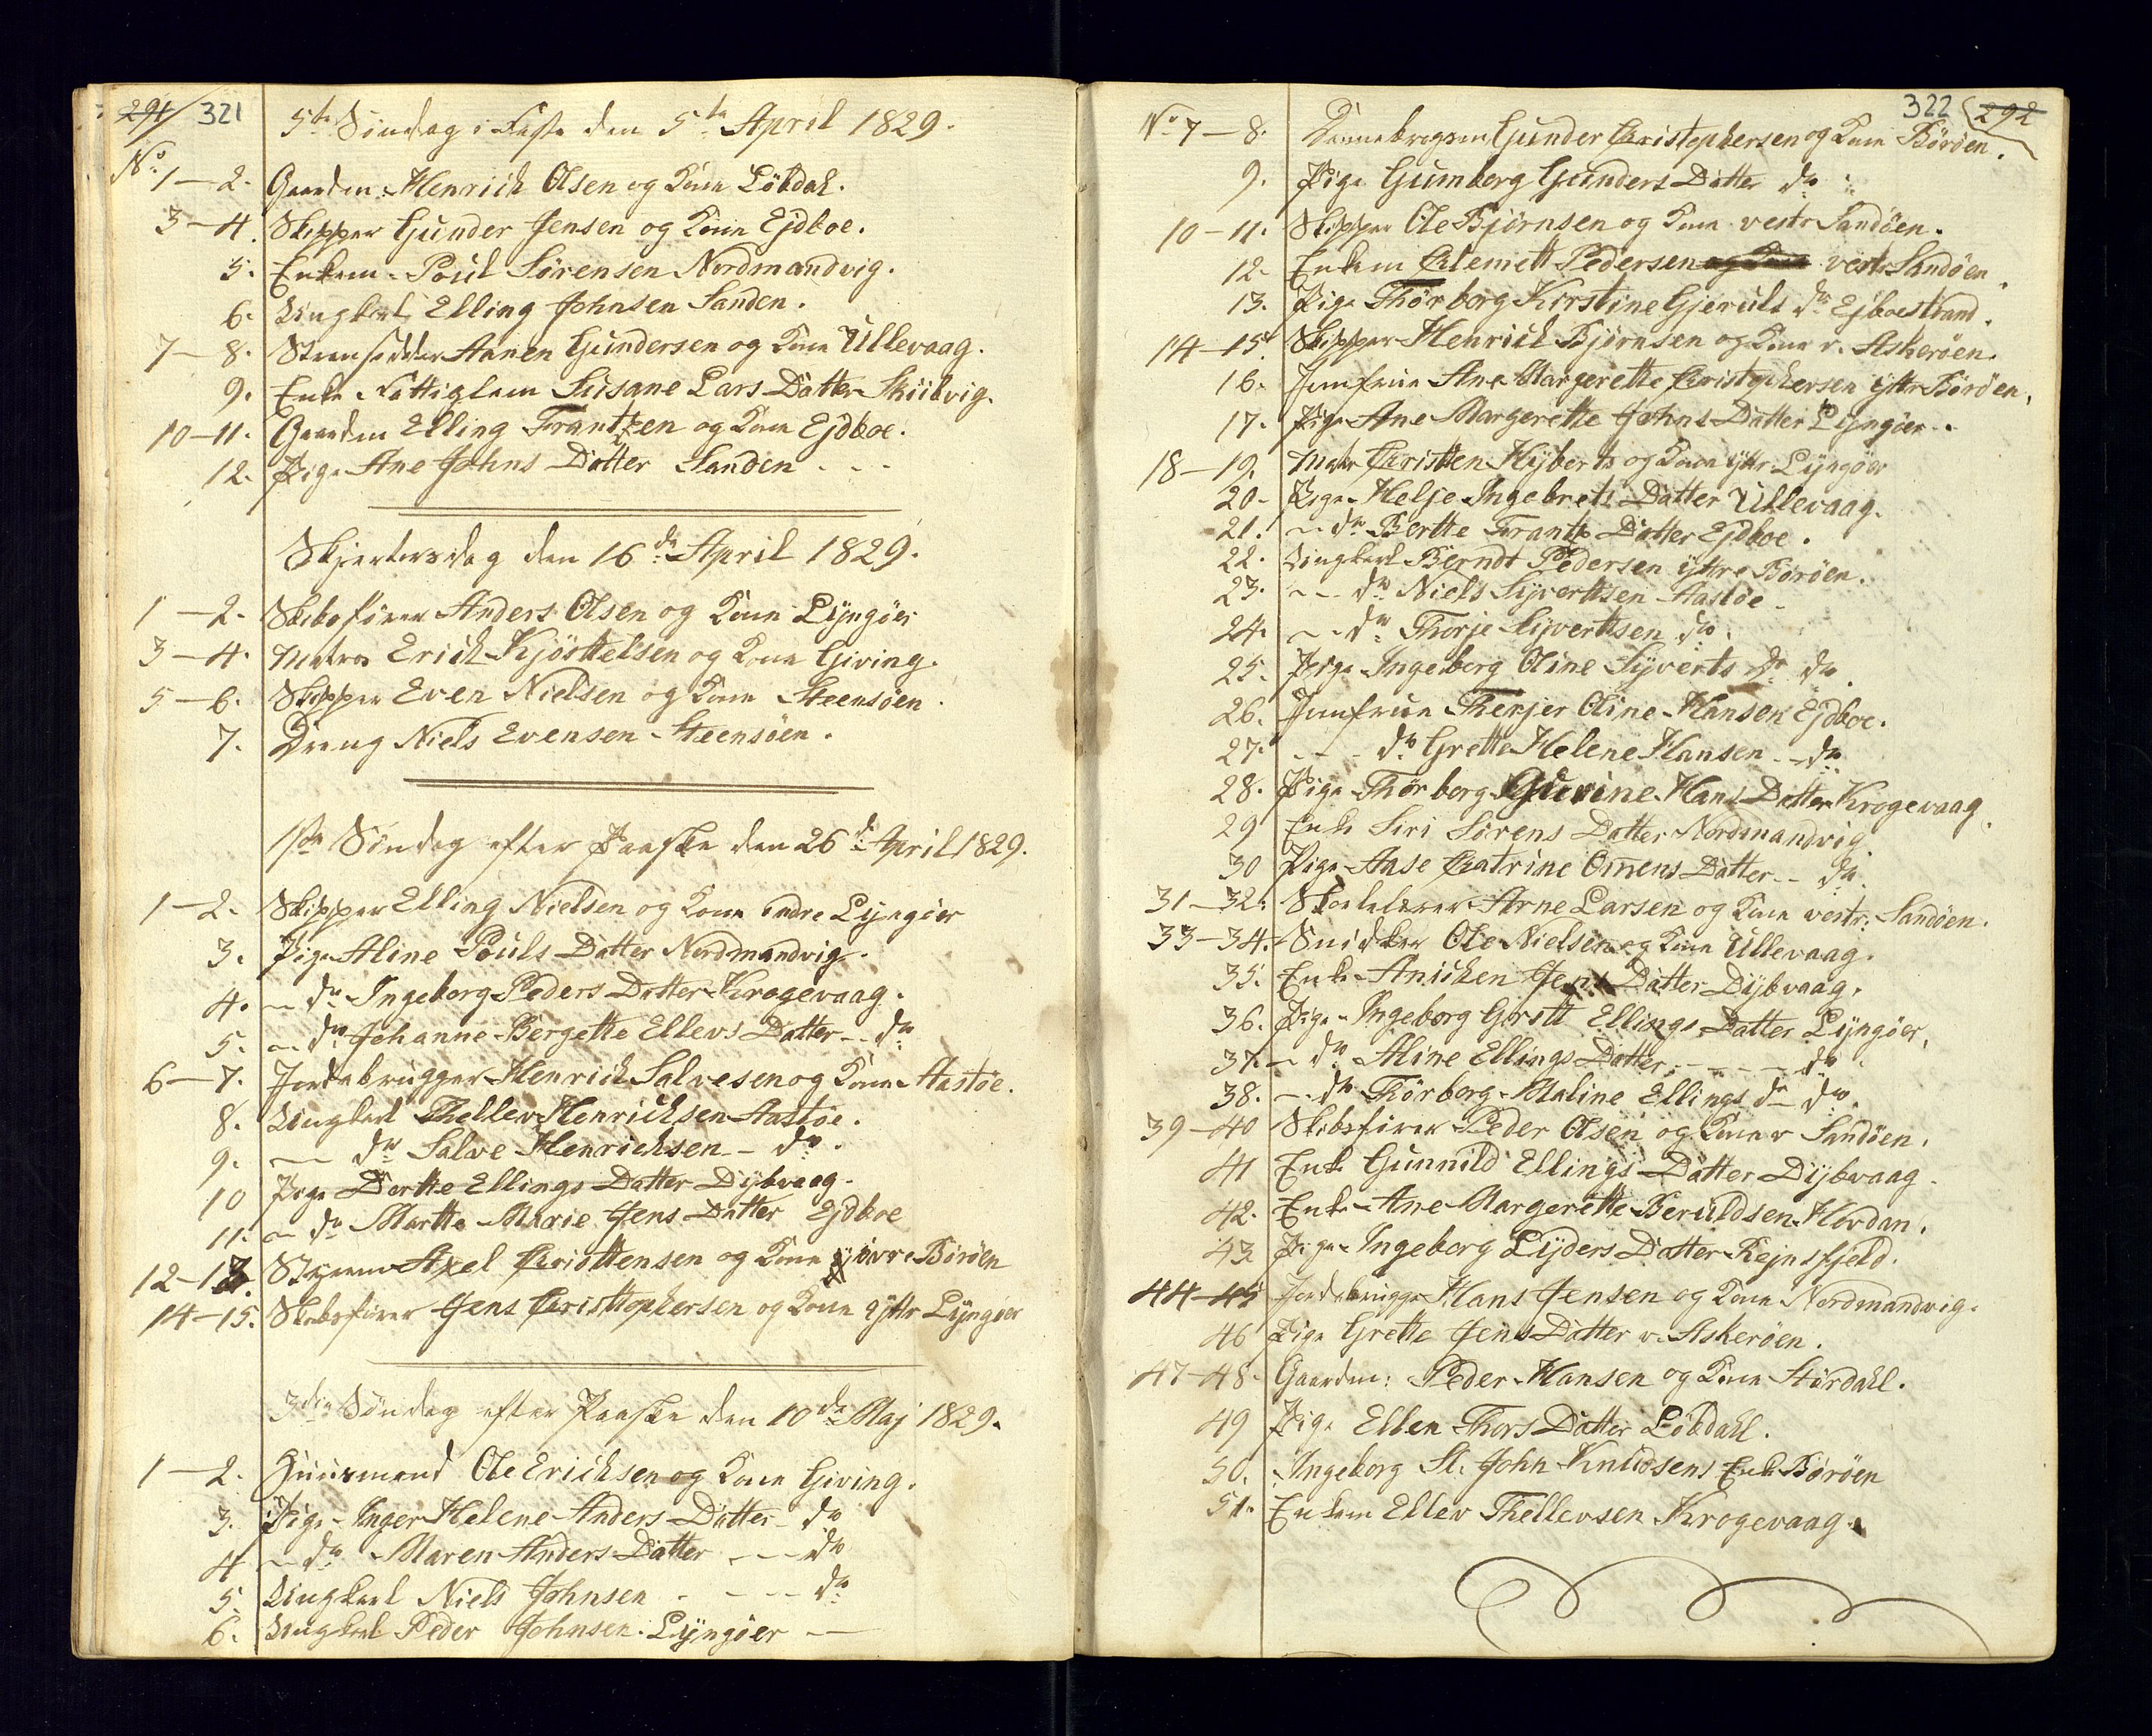 291/ 321
5te Søndag i Faste den 5te April 1829.
No. 1-2. Gaardm. Henrich Olsen og Kone Løbdal.
3-4. Skipper Gunder Jensen og Kone Ejdboe.
5. Enkem. Poul Sørensen Nordmandvig.
6. Ungkarl Elling Johnsen Sanden.
7-8. Steensætter Aanen Gundersen og Kone Ullevaag.
9. Enke Fattiglem Susane Lars Datter Skiibvig.
10-11. Gaardm Elling Frantzen og Kone Ejdboe.
12. Pige Ane Johns Datter Sanden - - -
Skjertorsdag den 16de April 1829.
1-2. Skibsfører Anders Olsen og Kone Lyngøer
3-4. Matros Erich Kjøsttelsen og Kone Giving.
5-6. Skipper Even Nielsen og Kone Steensøen.
7. Dreng Niels Evensen Steensøen.
1ste Søndag efter Paaske den 26de April 1829.
1-2. Skipper Elling Nielsen og Kone indre Lyngøer
3. Pige Aline Pouls Datter Nordmandvig.
4. - do Ingeborg Peders Datter Krogevaag.
5. - do Johanne Bergette Ellevs Datter - - do
6-7. Jordebrugger Henrich Salvesen og Kone Aastøe.
8. Ungkarl Thellev Henrichsen Aastøe.
9. - do Salve Henrichsen - do.
10 Pige Dortte Ellings Datter Dybvaag.
11. - do Martte Marie Jens Datter Ejdboe
12-13. Styrm Axel Christtensen og Kone øvre Børøen
14-15. Skibsfører Jens Christtophersen og Kone yttr Lyngøer
3die Søndag efter Paaske den 10de Maj 1829.
1-2. Huusmand Ole Erichsen og Kone Giving.
3. Pige Inger Helene Anders Datter - do
4 - do Maren Anders Datter - - - do
5. Ungkarl Niels Johnsen - - - - do
6. Ungkarl Peder Johnsen Lyngøer -
322 292
No. 7-8. Dannebrogsm Gunder Christophersen og Kone Børøen.
9. Pige Gumborg Gunders Datter do
10-11. Skipper Ole Bjørnsen og Kone vestr Sandøen.
12. Enkem Clemett Pedersen og Kone vestr Sandøen.
13. Pige Thørborg Kirstine Gjeruls do Ejboestrand.
14-15. Skipper Henrich Bjørnsen og Kone v. Askerøen.
16. Jomfrue Ane Margerette Christophersen yttr Børøen.
17. Pige Ane Margerette Johns Datter Lyngøer.
18-19. Matr Christten Hyberts og Kone yttr Lyngøer
20. Pige Helje Ingebrets Datter Ullevaag.
21. - do Bertte Frantz Datter Ejdboe.
22. Ungkarl Berndt Pedersen yttre Børøen.
23. - - do Niels Syvertsen Aastøe
24. - - do Thorje Syvertsen do.
25. Pige Ingeborg Oline Syverts Dr do
26. Jomfrue Therjer Oline Hansen Ejdboe.
27. - - - do Grette Helene Hansen - - do
28. Pige Thørborg Gurine Hans Datter Krogevaag.
29 Enke Siri Sørens Datter Nordmandvig
30 Pige Aase Chatrine Omens Datter - - do
31-32. Skolelærer Arne Larsen og Kone vestr. Sandøen.
33-34. Snidker Ole Nielsen og Kone Ullevaag.
35. Enke Anichen Jens Datter Dybvaag.
36. Pige Ingeborg Grett Ellings Datter Lyngøer.
37. - do Aline Ellings Datter - - - - do
38. - - do Thørborg Maline Ellings Dr do.
39-40 Skibsfører Peder Olsen og Kone v Sandøen.
41 Enke Gunnild Ellings Datter Dybvaag.
42. Enke Ane Margerette Beruldsen Hovdan.
43 Pige Ingeborg Lyders Datter Rejnsfjeld.
44-45 Jordebrugger Hans Jensen og Kone Nordmandvig.
46 Pige Grette Jens Datter v. Askerøen.
47-48. Gaardm: Peder Hansen og Kone Størdahl.
49 Pige Ellen Thors Datter Løbdahl.
50. Ingeborg Sl. John Knudsens Enke Børøen
51. Enkem Ellev Thellevsen Krogevaag.